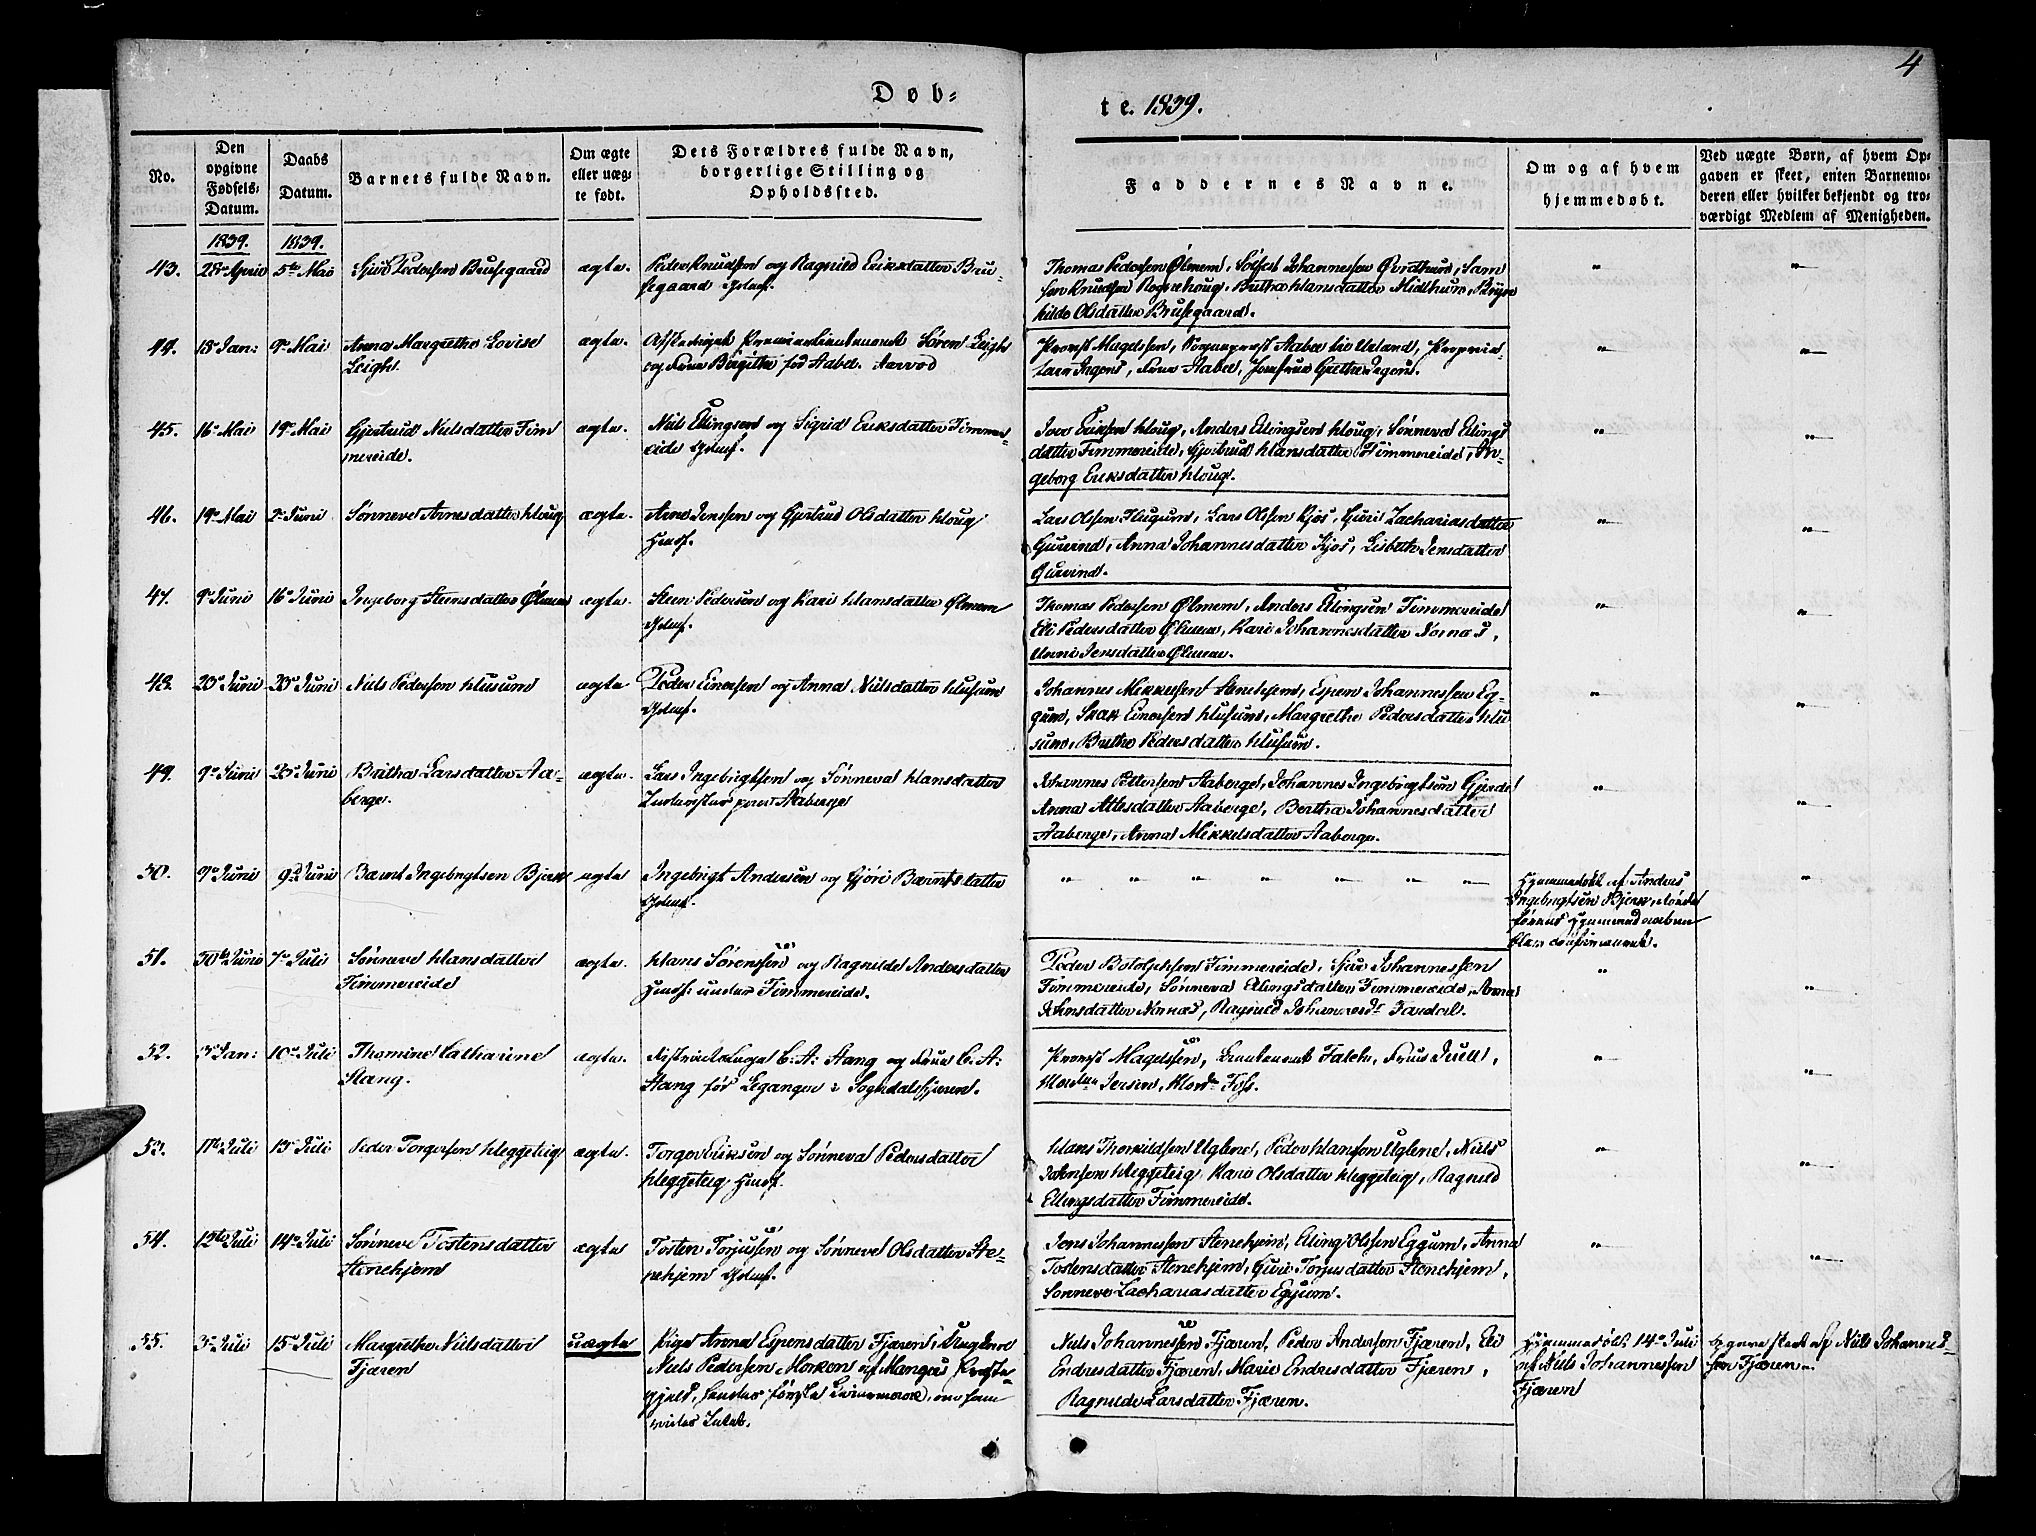 4
Døb-
te. 1839.
No.
Den opgivne Fødsels-Datum.
Daabs Datum.
Barnets fulde Navn.
Om ægte eller uægte født.
Dets Forældres fulde Navn, borgerlige Stilling og Opholdsted.
Faddernes Navne.
Om og af hvem hjemmedøbt.
Ved uægte Børn, af hvem Opgaven er skeet, enten Barnemoderen eller hvilket bekjendt og troværdigt Medlem af Menigheden.
1839. 1839.
43. 28de April 5te Mai Sjur Pedersen Brusegaard ægte. Peder Knudsen og Ragnild Eriksdatter Bru-
segaard Gdmf.
Thomas Pedersen Ølmem, Johannessen
Knudsen Brithe Hansdatter Midthun,
Olsdatter Brusegaard.
44. 18de Jan: 9de Mai Anna Margrethe Lovise
Leigh.
ægte. Afskediget Premierlieutenant Søren Leigh
og Frue Birgitte fød Aabel.
Provst Magelssen, Sogneprest Aabel
Frue Aabel, Jomfrue Grethe
45. 16de Mai 19de Mai Gjertrud Nielsdatter Tim
mereide.
ægte. Niels Ellingsen og Sigrid Eriksdatter Timme-
reide Gdmf.
Eriksen Houg, Anders Ellingsen Houg, Sønneva Ellings
datter Timmereide, Gjertrud Hansdatter Timmereide, In-
geborg Eriksdatter Houg.
46. 19de Mai 2den Juni Sønneve Arnesdatter Houg ægte. Arne Jenssen og Gjertrud Olsdatter Houg
Huusf.
Lars Olssen Flugum, Lars Olssen Kjos, Guri Zachariasdatter
Anna Johannesdatter Kjos, Lisbeth Jensdatter
47. 9de Juni 16de Juni Ingeborg Steensdatter Ølmem ægte. Steen Pedersen og Kari Hansdatter Ølmem
Gdmf.
Thomas Pedersen Ølmem, Anders Ellingsen Timmereide
Eli Pedersdatter Ølmem, Kari Johannesdatter Nornes,
Jensdatter Ølmem.
48. 20de Juni 23de Juni Niels Pedersen Husum ægte Peder Einersen og Anna Nielsdatter Husum
Gdmf.
Johannes Mikkelsen Stenehjem, Espen Johannessen Eg-
gum, Isak Einersen Husum, Margrethe Pedersdatter Hu
sum, Brithe Pedersdatter Husum.
49. 9de Juni 23de Juni Britha Larsdatter Aa-
berge.
ægte. Lars Ingebrigtsen og Sønneva Hansdatter
Inderster paa Aaberge
Johannes Pettersen Aaberge, Johannes Ingebrigtsen Gjerde
Anna Atlesdatter Aaberge, Bertha Johannesdatter
Aaberge, Anna Mikkelsdatter Aaberge.
50. 9de Juni 9de Juni Bernt Ingebrigtsen Bjerk ægte Ingebrigt Andersen og Gjøri Berntsdatter
Gdmf.
Hjemmedøbt af Anders
Ingebrigtsen Bjerk, døde
førend Hjemmedaaben
blev confirmeret.
51. 30te Juni 7de Juli Sønneve Hansdatter
Timmereide
ægte. Hans Sørenssen og Ragnilde Andersdatter
Huusf: under Timmereide.
Peder Botolphsen Timmereide, Sjur Johannessen
Timmereide, Sønneva Ellingsdatter Timmereide, Anna
Johnsdatter Nornes, Ragnild Johannesdr Fardal.
52. 3de Jan: 10de Juli Thomine Catharine
Stang.
ægte. Districtslæge C: A: Stang og Frue C. A:
Stang før Leganger i Sogndalsfjæren.
Provst Magelssen, Lieutenant Falch, Frue Juell,
Jersen, Foss.
53. 11te Juli 13de Juli Peder Torgersen Heggeteig ægte. Torger Eriksen og Sønneva Pedersdatter
Heggeteig Huusf.
Hans Thorkildsen Uglene, Peder Hansen Uglene, Niels
Johnsen Heggeteig, Kari Olsdatter Heggeteig, Ragnild
Ellingsdatter Timmereide.
54. 12te Juli 14de Juli Sønneve Tostensdatter
Stenehjem
ægte Tosten Torjussen og Sønneve Olsdatter Ste-
nehjem Gdmf.
Jens Johannessen Stenehjem, Elling Olssen Eggum, Anna
Tostensdatter Stenehjem, Guri Torjusdatter Stenehjem,
Sønneve Zachariasdatter Eggum.
55. 3de Juli 15de Juli Margrethe Nielsdatter
Fjæren
uægte Pige Anna Espensdatter Fjæren, Ungkarl
Niels Pedersen Morken af Manger Præste-
gjeld, hendes første Leiermaal, om ham
vides Intet.
Niels Johannessen Fjæren, Peder Andersen Fjæren, Eli
Endresdatter Fjæren, Marie Endresdatter Fjæren,
Ragnilde Larsdatter Fjæren.
Hjemmedøbt 14de Juli
af Niels Johannessen
Fjæren
Opgave skeet af Niels Johannes-
sen Fjæren.